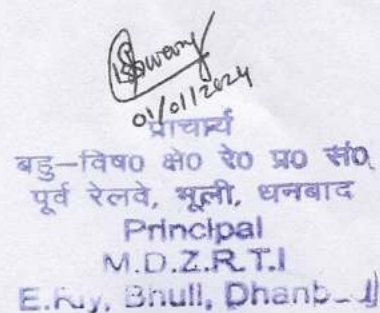 01/01/2024
प्राचार्य
बहु-विष० क्षे० रे० प्र० सं०
पूर्व रेलवे, भूली, धनबाद
Principal
M.D.Z.R.T.I
E.Rly, Bhuli,